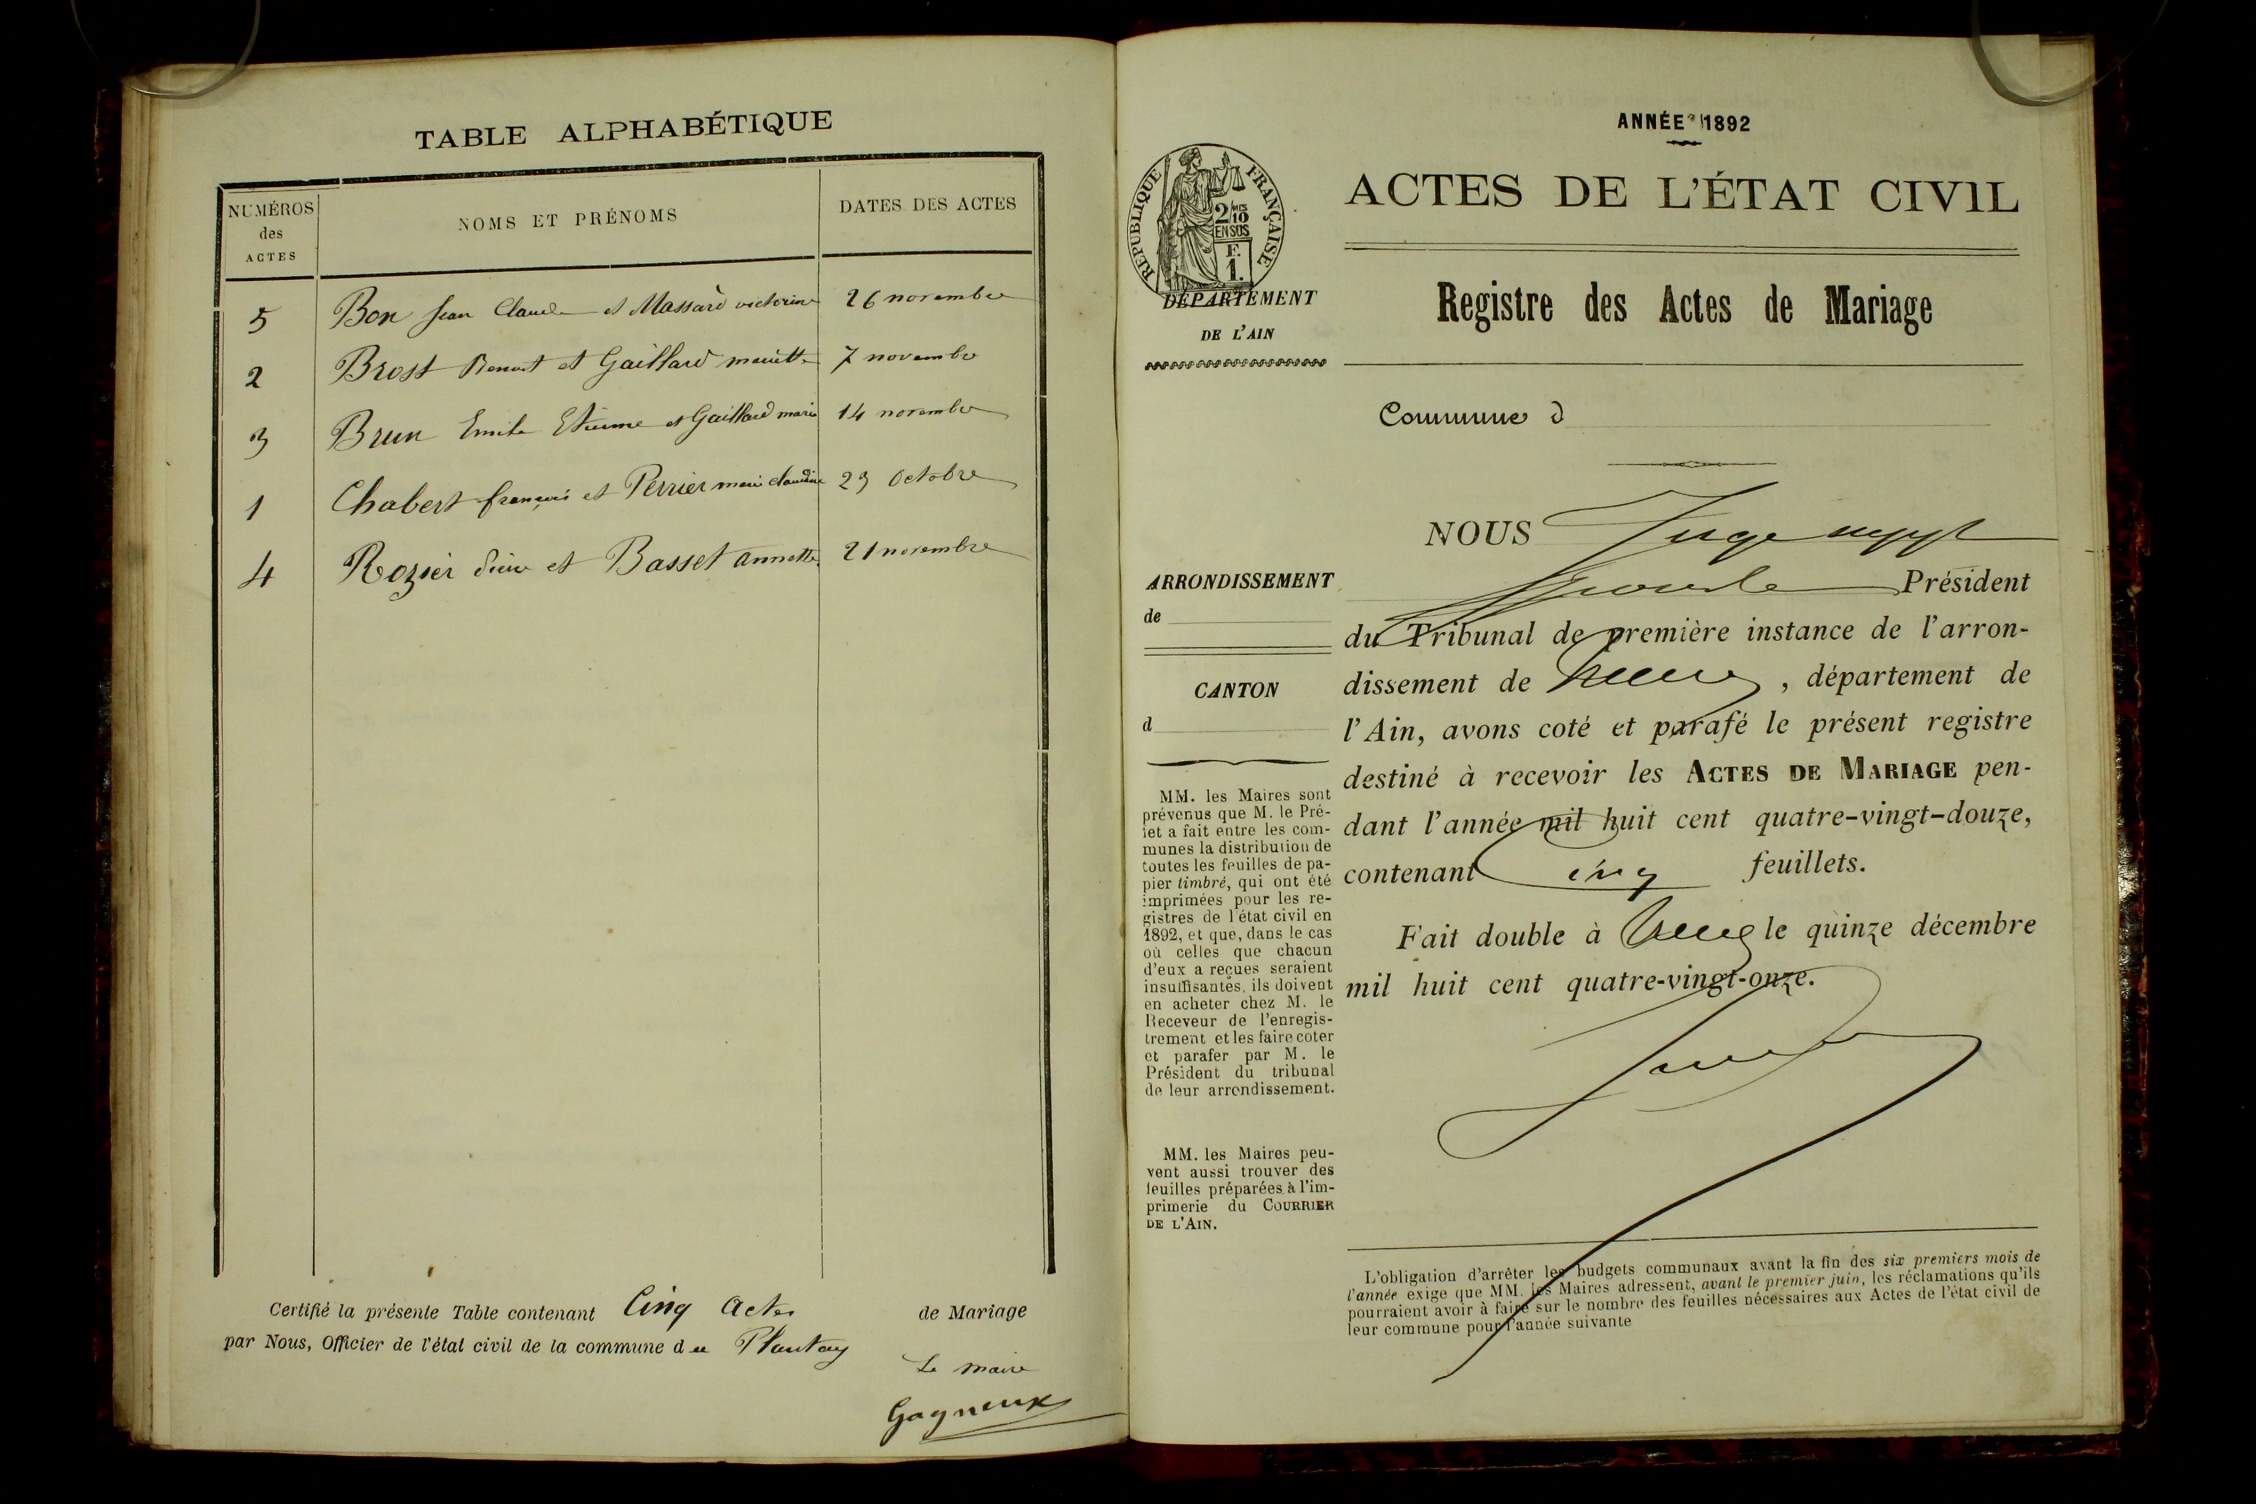 TABLE ALPHABÉTIQUE
NUMÉROS
des
ACTES
NOMS ET PRÉNOMS
DATES DES ACTES
5 Bon Jean Claude et Massard victorine 26 novembre
2 Brost Benoit et Gaillard mariette 7 novembre
3 Brun Emile Etienne et Gaillard marie 14 novembre
1 Chabert françois et Perrier marie claudine 23 Octobre
4 Rozier et Basset annette 21 novembre
Certifié la présente Table contenant Cinq actes de Mariage
par Nous, Officier de l'état civil de la commune du Plantay
Le maire
Gagneux
ANNÉE 1892
RÉPUBLIQUE FRANÇAISE
2/10 MES
EN SUS
F.
1.
ACTES DE L'ÉTAT CIVIL
DÉPARTEMENT
DE L'AIN
Registre des Actes de Mariage
Commune d
ARRONDISSEMENT
de
CANTON
d
MM. les Maires sont
prévenus que M. le Pré-
fet a fait entre les com-
munes la distribution de
toutes les feuilles de pa-
pier timbré, qui ont été
imprimées pour les re-
gistres de l'état civil en
1892, et que, dans le cas
où celles que chacun
d'eux a reçues seraient
insuffisantes, ils doivent
en acheter chez M. le
Receveur de l'enregis-
trement et les faire coter
et parafer par M. le
Président du tribunal
de leur arrondissement.
MM. les Maires peu-
vent aussi trouver des
feuilles préparées à l'im-
primerie du COURRIER
DE L'AIN.
NOUS Juge
Président
du Tribunal de première instance de l'arron-
dissement de , département de
l'Ain, avons coté et parafé le présent registre
destiné à recevoir les ACTES DE MARIAGE pen-
dant l'année mil huit cent quatre-vingt-douze,
contenant Cinq feuillets.
Fait double à le quinze décembre
mil huit cent quatre-vingt-onze.
L'obligation d'arrêter les budgets communaux avant la fin des six premiers mois de
l'année exige que MM. les Maires adressent, avant le premier juin, les réclamations qu'ils
pourraient avoir à faire sur le nombre des feuilles nécessaires aux Actes de l'état civil de
leur commune pour l'année suivante